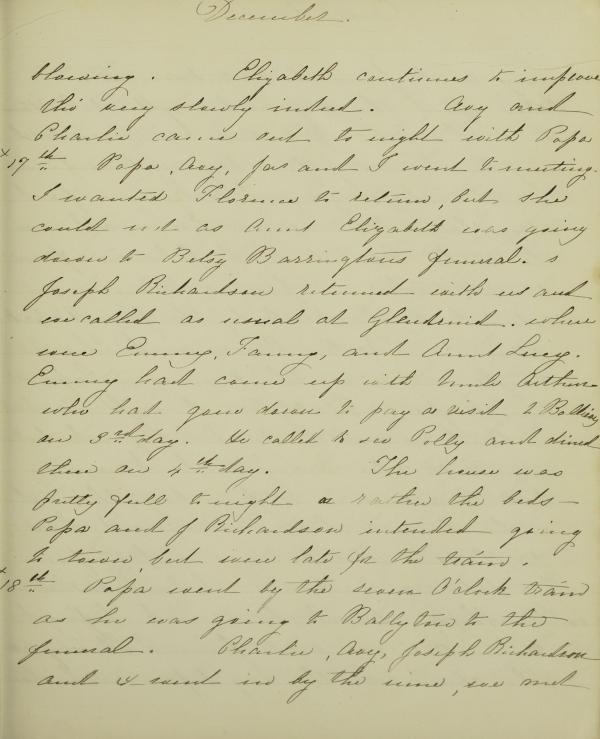 December.
blowing. Elizabeth continues to improve
tho' very slowly indeed. Avy and
Charlie came out to night with Papa
+17th Papa, Avy, Jas and I went to meeting.
I wanted Florence to return, but she
could not as Aunt Elizabeth was going
down to Betsy Barrington's funeral.
Joseph Richardson returned with us and
we called as usual at Glendruid. where
were Emmy, Fanny, and Aunt Lucy.
Emmy had come up with Uncle Arthur
who had gone down to pay a visit to
on 3rd day. He called to see Polly and dined
there on 4th day. The house was
pretty full to night or rather the beds –
Papa and J Richardson intended going
to town, but were late for the train.
+18th Papa went by the seven O'clock train
as he was going to Ballytore to the
funeral. Charlie, Avy, Joseph Richardson
and I went in by the nine, we met